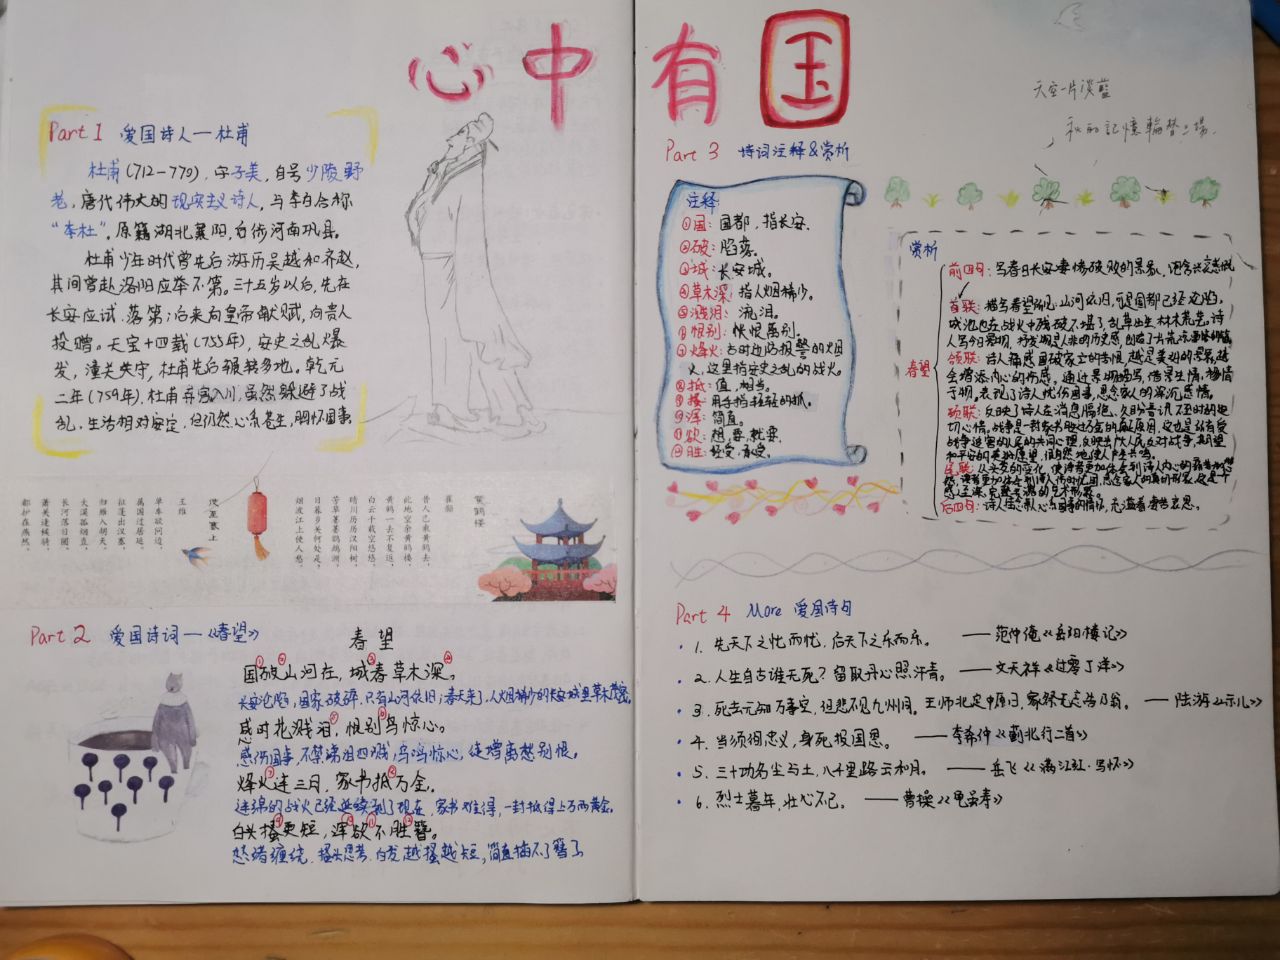 心中有国
Part 1 爱国诗人—杜甫
杜甫(712-770),字子美,自号少陵野
老,唐代伟大的现实主义诗人,与李白合称
"李杜"。原籍湖北襄阳,自份河南巩县。
杜甫少年时代曾先后游历吴越和齐赵,
其间曾赴洛阳应举不第。三十五岁以后,先在
长安应试,落第;后来向皇帝献赋,向贵人
投赠。天宝十四载(755年),安史之乱爆
发,潼关失守,杜甫先后辗转多地。乾元
二年(759年),杜甫弃官入川,虽然躲避了战
乱,生活相对安定,但仍然心系苍生,胸怀国事
使至塞上
王维
单车欲问边,
属国过居延。
征蓬出汉塞,
归雁入胡天。
大漠孤烟直,
长河落日圆。
萧关逢候骑,
都护在燕然。
黄鹤楼
崔颢
昔人已乘黄鹤去,
此地空余黄鹤楼。
黄鹤一去不复返,
白云千载空悠悠。
晴川历历汉阳树,
芳草萋萋鹦鹉洲。
日暮乡关何处是,
烟波江上使人愁。
Part 2 爱国诗词—《春望》
春望
国①破②山河在,城③春草木深④。
长安沦陷,国家破碎,只有山河依旧;春天来了,人烟稀少的长安城里草木茂密。
感时花溅泪⑤,恨别⑥鸟惊心。
感伤国事,不禁涕泪四溅,鸟鸣惊心,徒增离愁别恨。
烽火⑦连三月,家书抵⑧万金。
连绵的战火已经延续到了现在,家书难得,一封抵得上万两黄金。
白头搔⑨更短,浑⑩欲⑪不胜⑫簪。
愁绪缠绕,搔头思考,白发越搔越短,简直插不了簪了
Part 3 诗词注释&赏析
注释:
①国:国都,指长安。
②破:陷落。
③城:长安城。
④草木深:指人烟稀少。
⑤溅泪:流泪。
⑥恨别:怅恨离别。
⑦烽火:古时边防报警的烟
火,这里指安史之乱的战火。
⑧抵:值,相当。
⑨搔:用手指轻轻的抓。
⑩浑:简直。
⑪欲:想,要,就要。
⑫胜:经受,承受。
天空一片淡藍
秋的記憶輪替上場.
赏析
春望
前四句:写春日长安凄惨破败的景象,
首联:描写春望所见:山河依旧,可是国都已经沦陷,
城池也在战火中残破不堪了,乱草丛生,林木荒芜。诗
颔联:诗人痛感国破家亡的苦恨,越是美好的景象,越
会增添内心的伤痛。通过景物描写,借景生情,移情
于物。表现了诗人忧伤国事,思念家人的深沉感情。
颈联:反映了诗人在消息隔绝、久盼音讯不至时的迫
切心情。战争是一封家书胜过万金的真正原因,这也是所有受
战争迫害的人民的共同心理,反映出广大人民反对战争,期望
和平安定的美好愿望,很自然地使人产生共鸣。
Part 4 More 爱国诗句
1. 先天下之忧而忧,后天下之乐而乐。 ——范仲淹《岳阳楼记》
2. 人生自古谁无死?留取丹心照汗青。 ——文天祥《过零丁洋》
3. 死去元知万事空,但悲不见九州同。王师北定中原日,家祭无忘告乃翁。——陆游《示儿》
4. 当须徇忠义,身死报国恩。 ——李希仲《蓟北行二首》
5. 三十功名尘与土,八千里路云和月。 ——岳飞《满江红·写怀》
6. 烈士暮年,壮心不已。 ——曹操《龟虽寿》